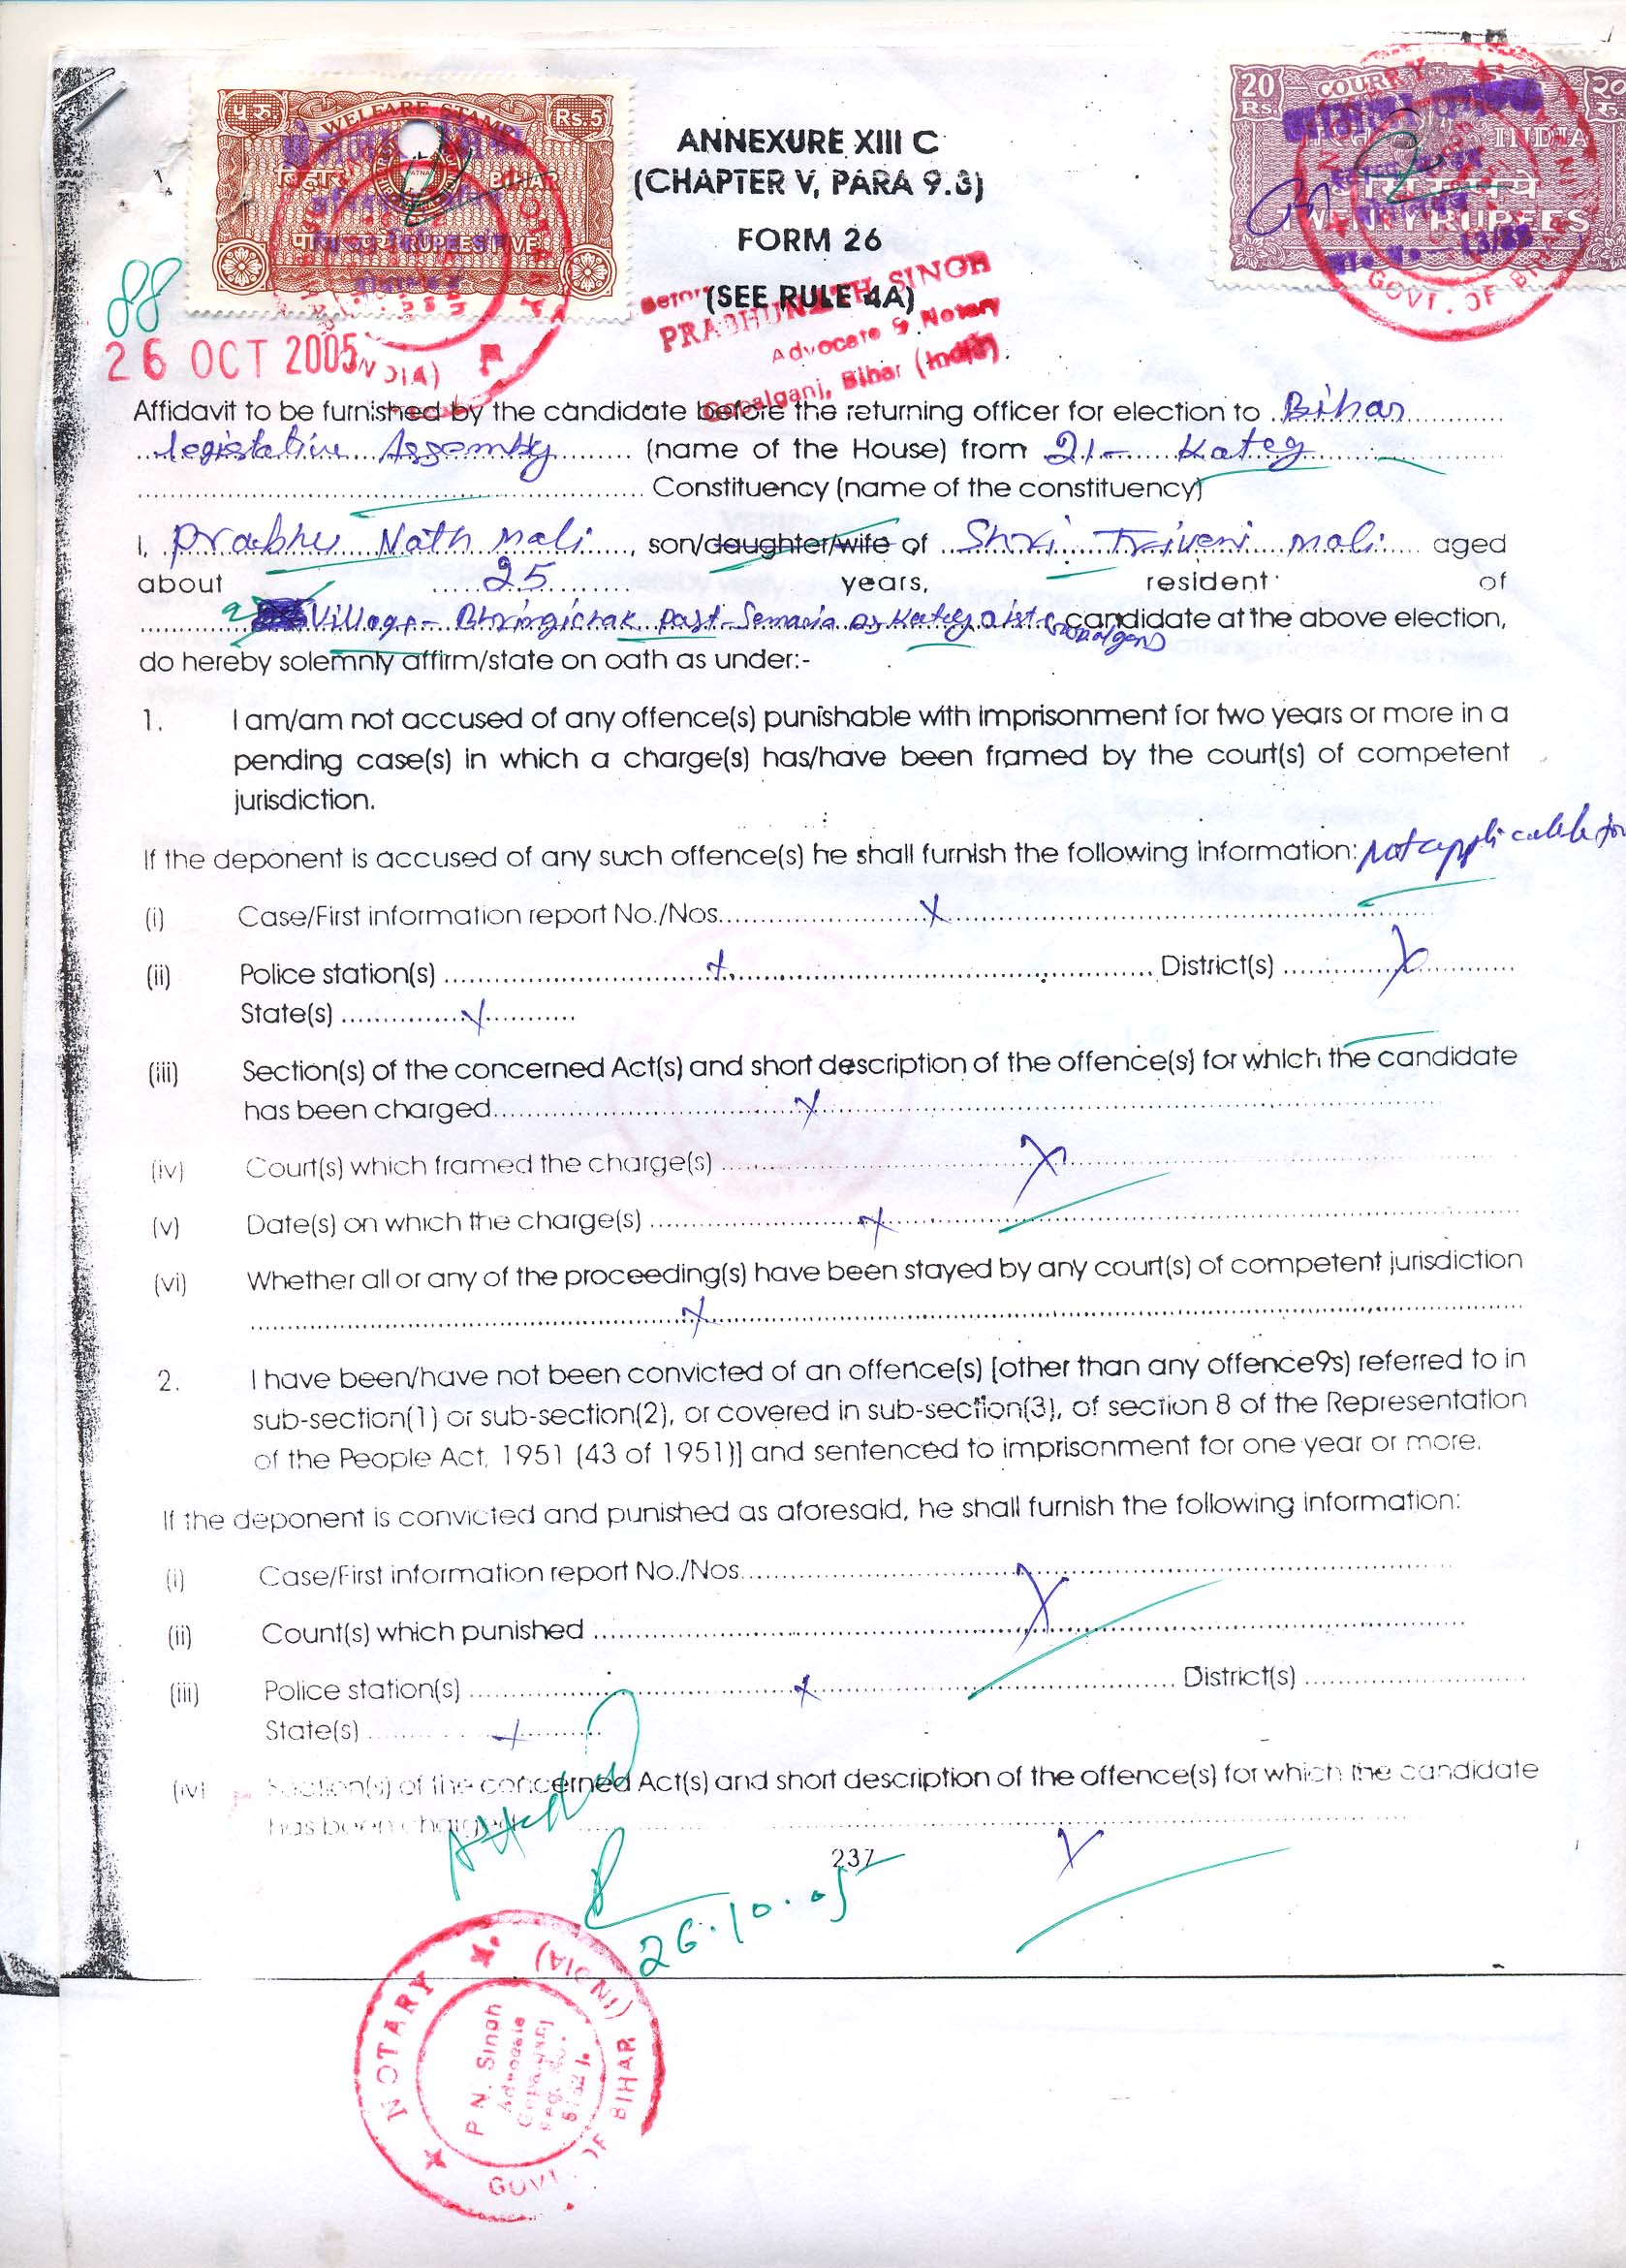 WELFARE STAMP
५ रु. Rs.5
बिहार BIHAR
RUPEES FIVE
20 Rs. COURT २० रु.
INDIA
बीस रुपये
TWENTY RUPEES
NOTARY
GOVT. OF BIHAR
ANNEXURE XIII C
(CHAPTER V, PARA 9.3)
FORM 26
(SEE RULE 4A)
PRABHUNATH SINGH
Advocate & Notary
Gopalganj, Bihar (India)
88
26 OCT 2005
Affidavit to be furnished by the candidate before the returning officer for election to Bihar
legislative Assembly (name of the House) from 21- Kateg
Constituency (name of the constituency)
I, Prabhu Nath mali, son/daughter/wife of Shri Triveni mali aged
about 25 years, resident of
Village- Bhringichak Post-Semaria candidate at the above election,
do hereby solemnly affirm/state on oath as under:-
1. I am/am not accused of any offence(s) punishable with imprisonment for two years or more in a
pending case(s) in which a charge(s) has/have been framed by the court(s) of competent
jurisdiction.
If the deponent is accused of any such offence(s) he shall furnish the following information: Not applicable for
(i) Case/First information report No./Nos. X
(ii) Police station(s) X District(s) X
State(s) X
(iii) Section(s) of the concerned Act(s) and short description of the offence(s) for which the candidate
has been charged X
(iv) Court(s) which framed the charge(s) X
(v) Date(s) on which the charge(s) X
(vi) Whether all or any of the proceeding(s) have been stayed by any court(s) of competent jurisdiction
X
2. I have been/have not been convicted of an offence(s) [other than any offence9s) referred to in
sub-section(1) or sub-section(2), or covered in sub-section(3), of section 8 of the Representation
of the People Act, 1951 (43 of 1951)] and sentenced to imprisonment for one year or more.
If the deponent is convicted and punished as aforesaid, he shall furnish the following information:
(i) Case/First information report No./Nos. X
(ii) Count(s) which punished
(iii) Police station(s) X District(s)
State(s) X
(iv) Section(s) of the concerned Act(s) and short description of the offence(s) for which the candidate
has been charged X
237
26.10.05
NOTARY
P. N. Singh
Advocate
Gopalganj
GOVT. OF BIHAR (INDIA)